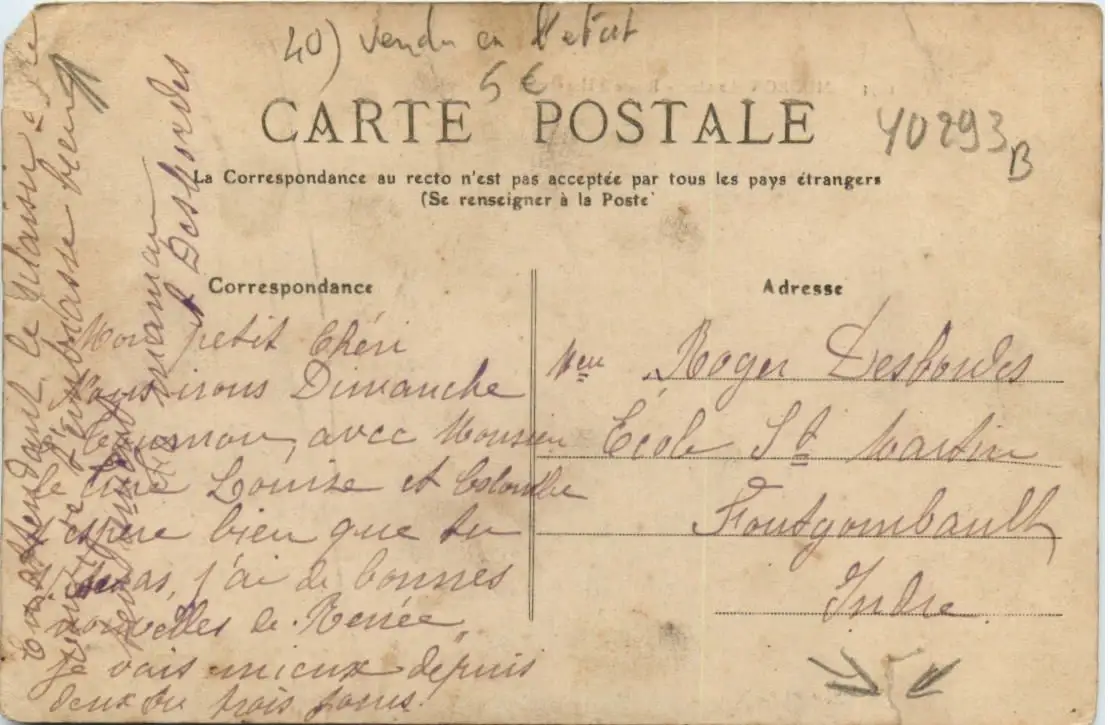 40) vendu en l'etat
5 €
CARTE POSTALE
40293
B
La Correspondance au recto n'est pas acceptée par tous les pays étrangers
(Se renseigner à la Poste
Correspondance
Adresse
Mon petit Chéri
Nous irons Dimanche
Tournon, avec Monsieur
Louise et
espère bien que tu
j'ai de bonnes
nouvelles de Renée,
je vais mieux depuis
deux ou trois jours.
En attendant le plaisir de
t'embrasse bien
maman
Desbordes
Roger Desbordes
École St Martin
Fontgombault
Indre